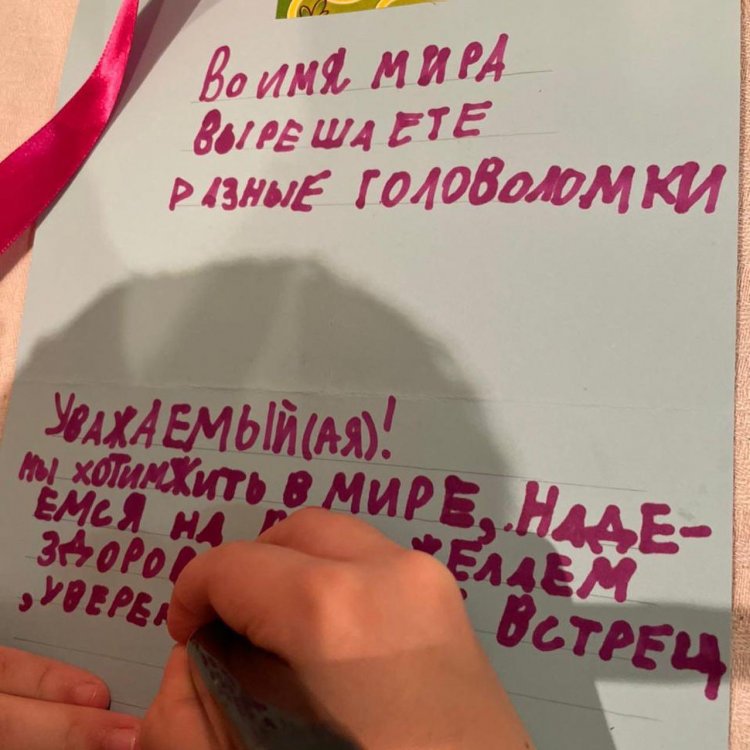 Во имя мира
вырешаете
разные головоломки
Уважаемый(ая)!
мы хотимжить в мире, . Наде-
емся на желаем
,уверен встрец